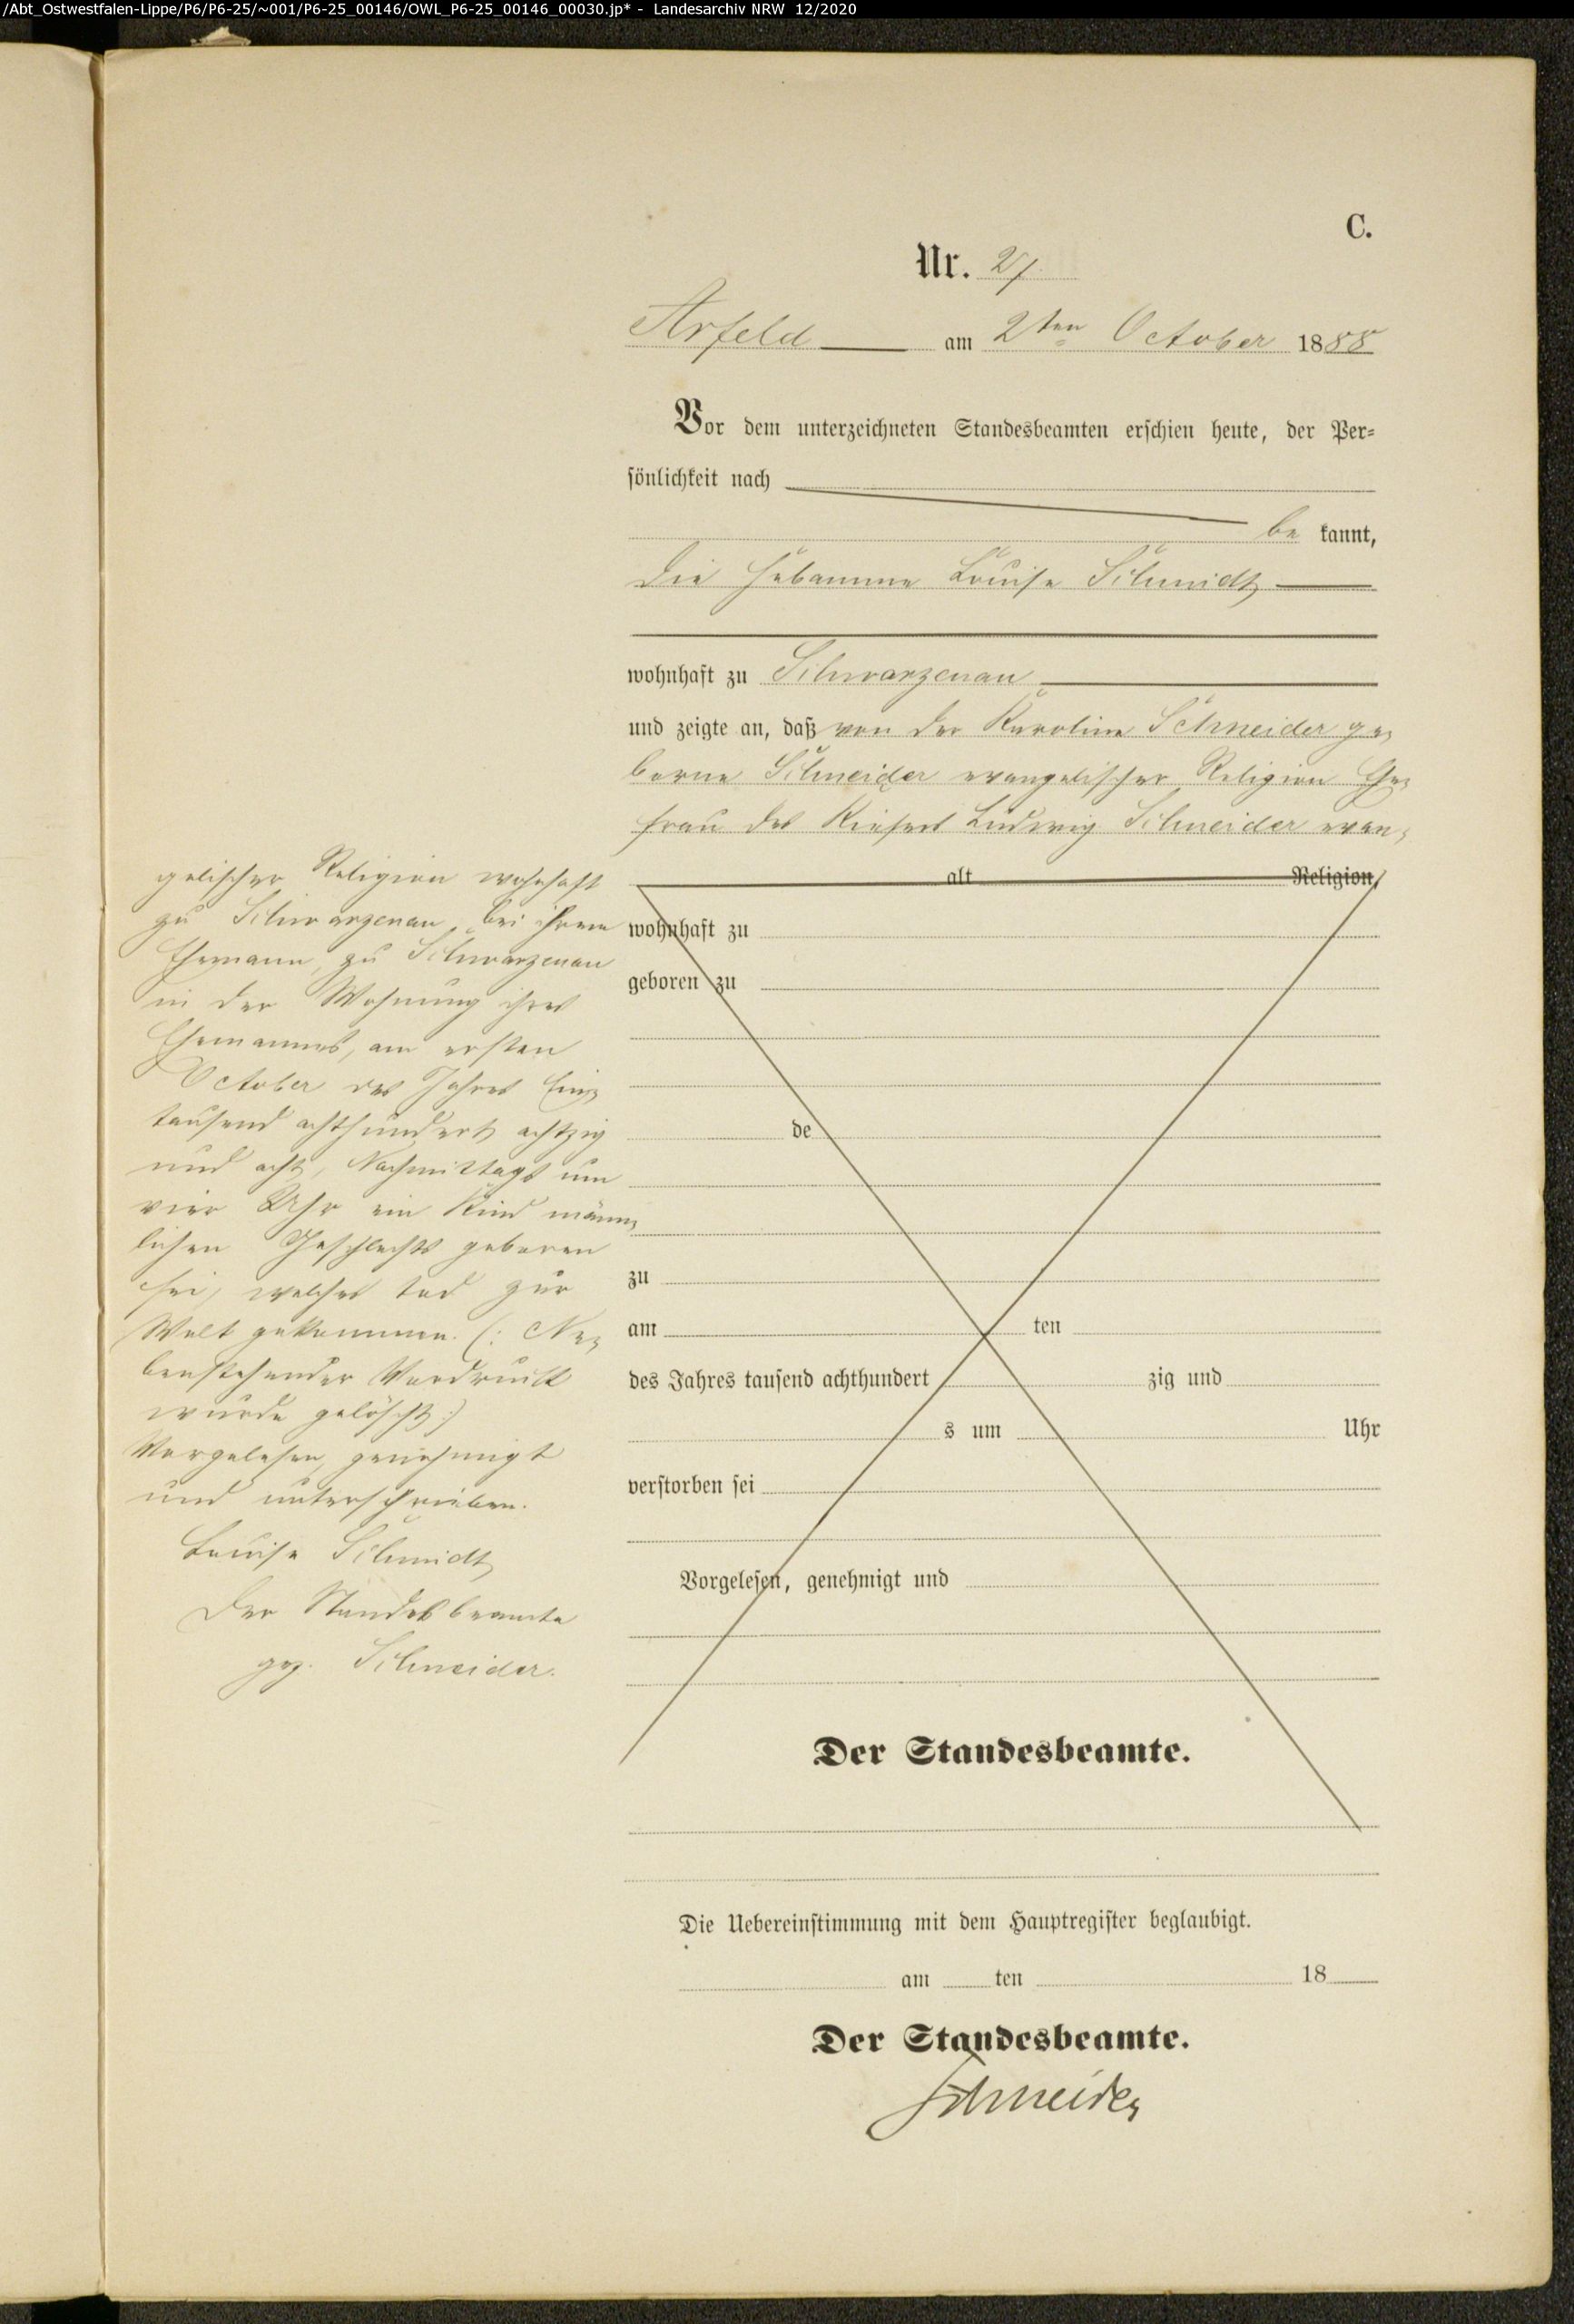 /Abt_Ostwestfalen-Lippe/P6/P6-25/~001/P6-25_00146/OWL_P6-25_00146_00030.jp* - Landesarchiv NRW 12/2020
C.
Nr. 27.
Arfeld am 2ten October 1888
Vor dem unterzeichneten Standesbeamten erschien heute, der Per-
sönlichkeit nach
be kannt,
die Hebamme Louise Schmidt
wohnhaft zu Schwarzenau
und zeigte an, daß von der Karoline Schneider ge-
borne Schneider evangelischer Religion Ehe-
frau des Ludwig Schneider evan-
gelischer Religion wohnhaft
zu Schwarzenau bei ihrem
Ehemann, zu Schwarzenau
in der Wohnung ihres
Ehemannes, am ersten
October des Jahres Ein-
tausend achthundert achtzig
und acht, Nachmittags um
vier Uhr ein Kind männ-
lichen Geschlechts geboren
sei, welches tod zur
Welt gekommen. (: Ne-
benstehender Vordruck
wurde gelöscht :)
Vorgelesen, genehmigt
und unterschrieben.
Louise Schmidt
Der Standesbeamte
gez. Schneider.
alt Religion,
wohnhaft zu
geboren zu
de
zu
am ten
des Jahres tausend achthundert zig und
s um Uhr
verstorben sei
Vorgelesen, genehmigt und
Der Standesbeamte.
Die Uebereinstimmung mit dem Hauptregister beglaubigt.
am ten 18
Der Standesbeamte.
Schneider